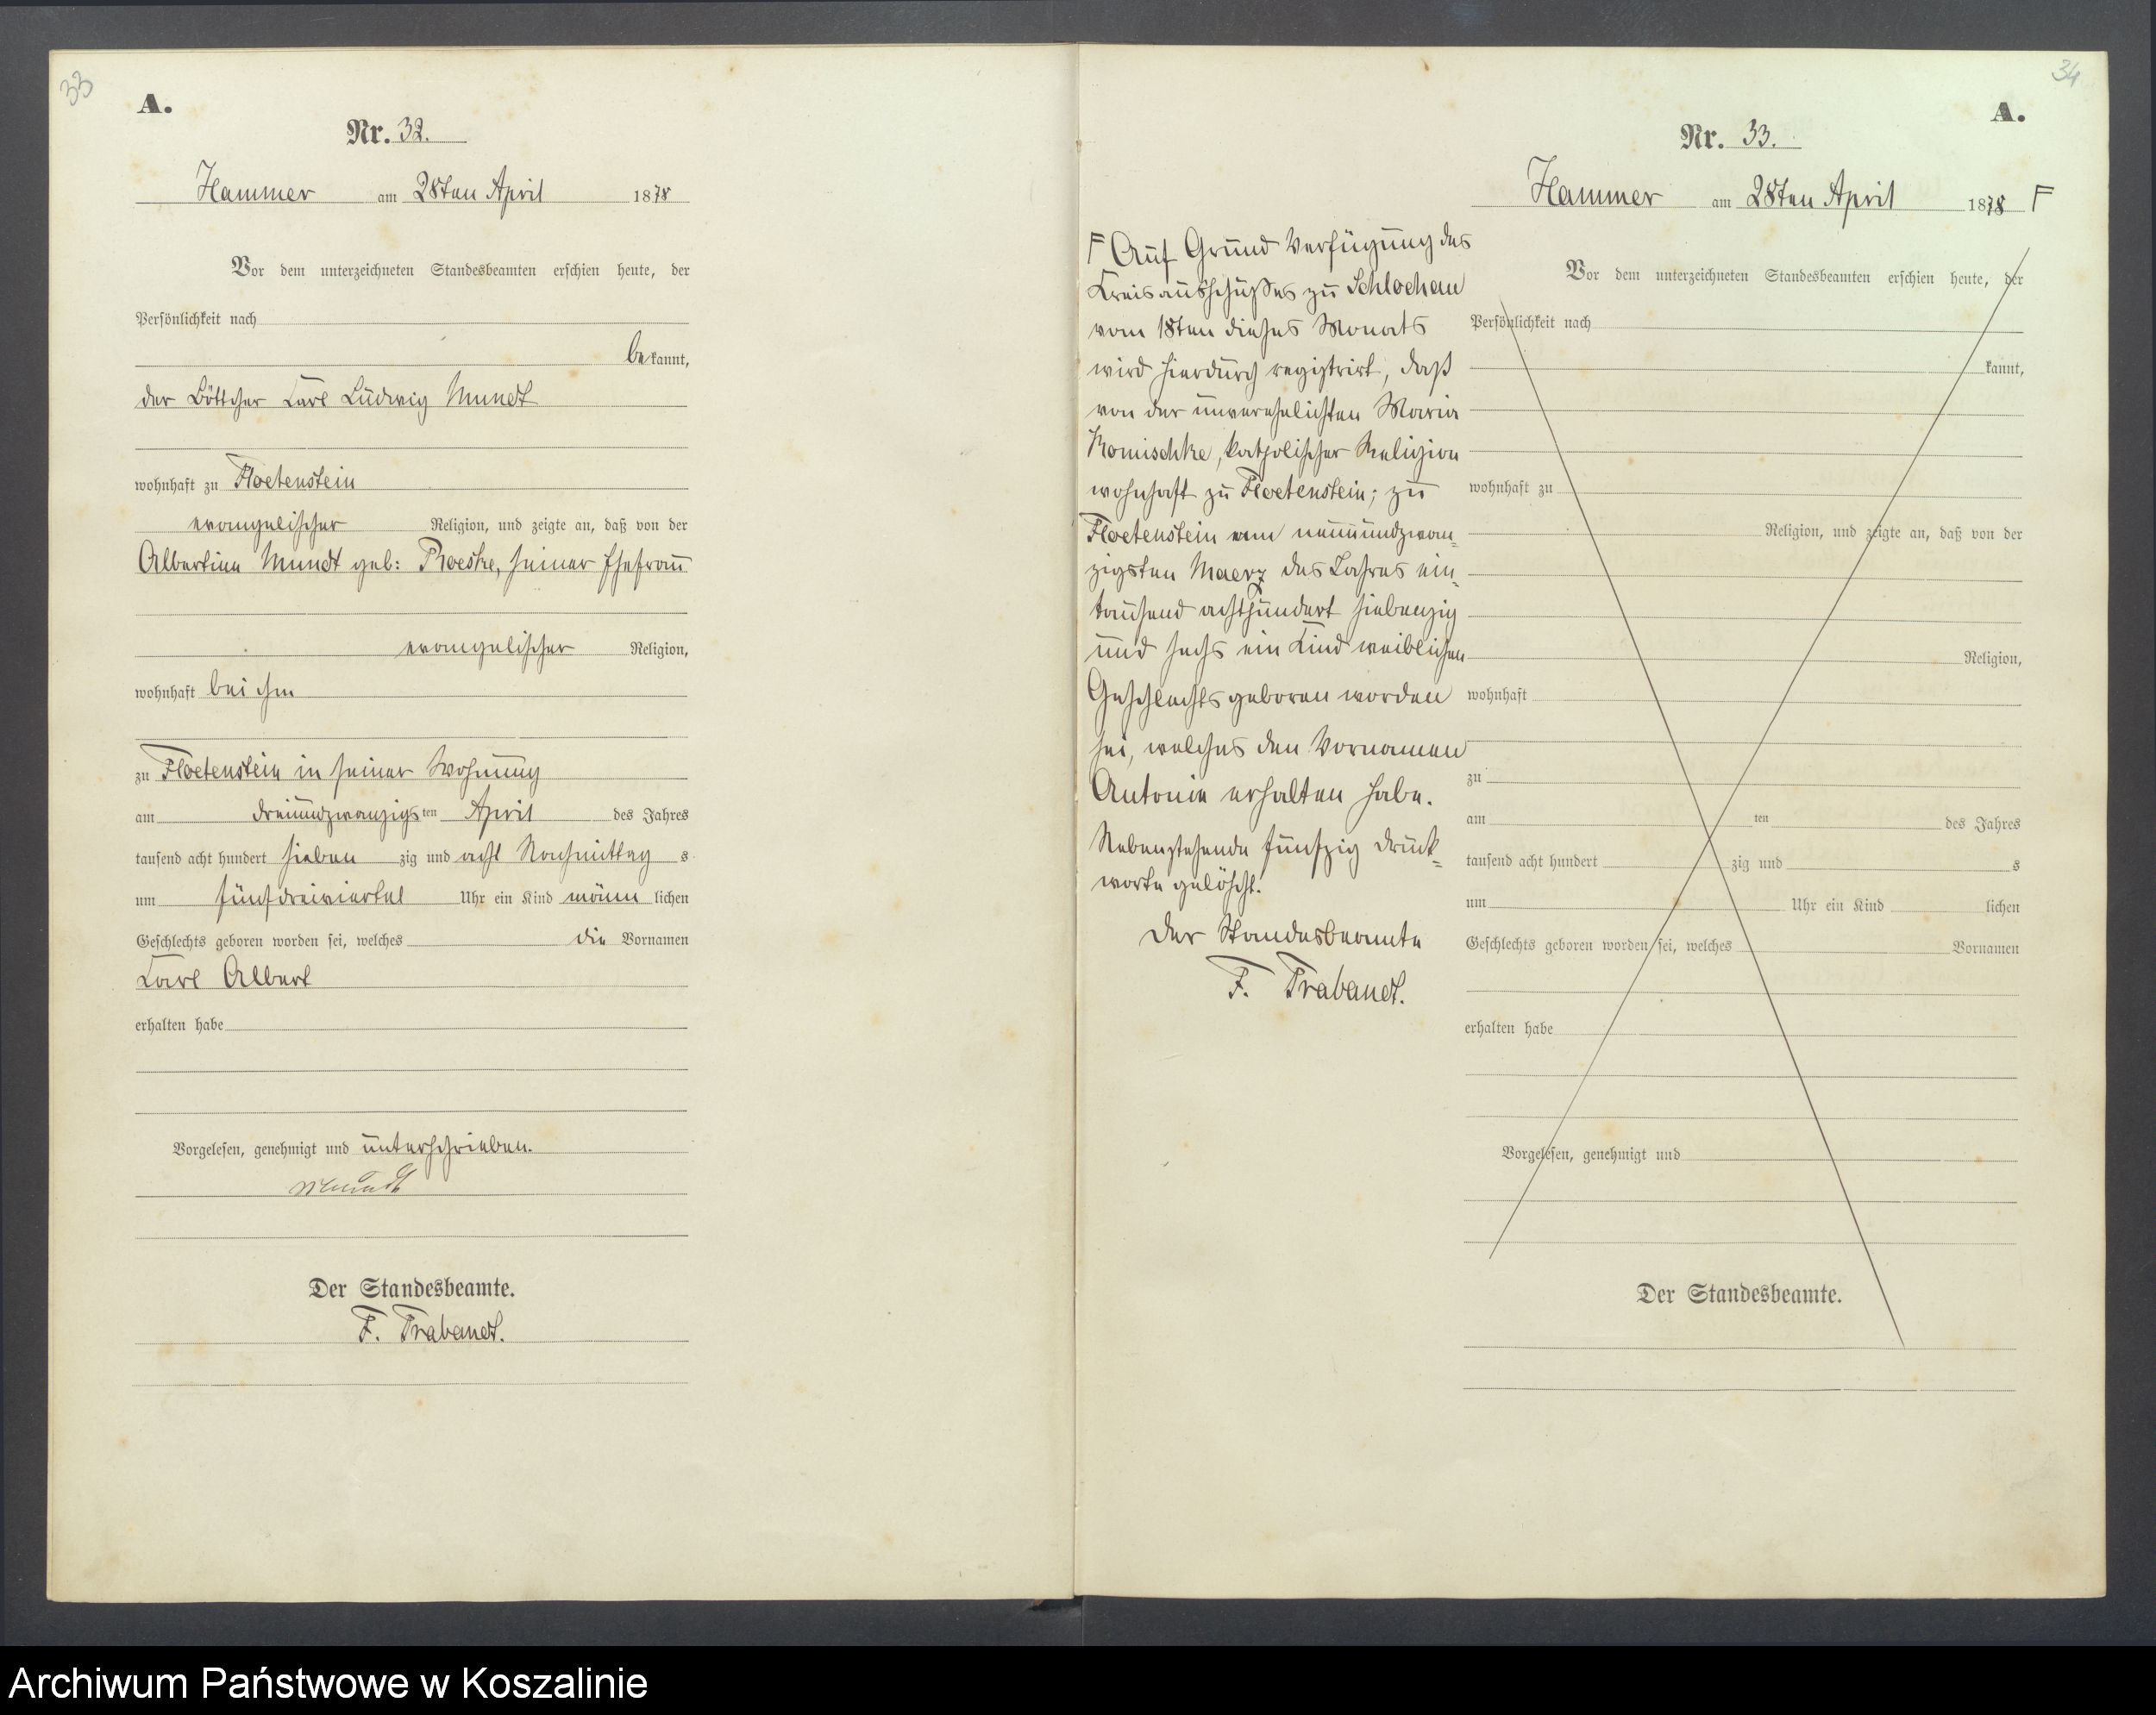 33
A.
Nr. 32.
Hammer am 28ten April 1878
Vor dem unterzeichneten Standesbeamten erschien heute, der
Persönlichkeit nach
bekannt,
der Böttcher Carl Ludwig Mundt
wohnhaft zu Floetenstein
evangelischer Religion, und zeigte an, daß von der
Albertine Mundt geb: Roeske, seiner Ehefrau
evangelischer Religion,
wohnhaft bei ihm
zu Floetenstein in seiner Wohnung
am dreiundzwanzigsten April des Jahres
tausend acht hundert siebenzig und acht Nachmittags
um fünfdreiviertel Uhr ein Kind männlichen
Geschlechts geboren worden sei, welches die Vornamen
Carl Albert
erhalten habe
Vorgelesen, genehmigt und unterschrieben.
Mundt
Der Standesbeamte.
F. Trabandt.
34
A.
Nr. 33.
Hammer am 28ten April 1878 F
F Auf Grund Verfügung des
Kreisausschußes zu Schlochau
vom 18ten dieses Monats
wird hierdurch registrirt, daß
von der unverehelichten Maria
Komischke, katholischer Religion
wohnhaft zu Floetenstein; zu
Floetenstein am neunundzwan-
zigsten Maerz des Jahres ein-
tausend achthundert siebenzig
und sechs ein Kind weiblichen
Geschlechts geboren worden
sei, welches den Vornamen
Antonie erhalten habe.
Nebenstehende fünfzig Druck-
worte gelöscht.
Der Standesbeamte
F. Trabandt.
Vor dem unterzeichneten Standesbeamten erschien heute, der
Persönlichkeit nach
kannt,
wohnhaft zu
Religion, und zeigte an, daß von der
Religion,
wohnhaft
zu
am ten des Jahres
tausend acht hundert zig und s
um Uhr ein Kind lichen
Geschlechts geboren worden sei, welches Vornamen
erhalten habe
Vorgelesen, genehmigt und
Der Standesbeamte.
Archiwum Państwowe w Koszalinie